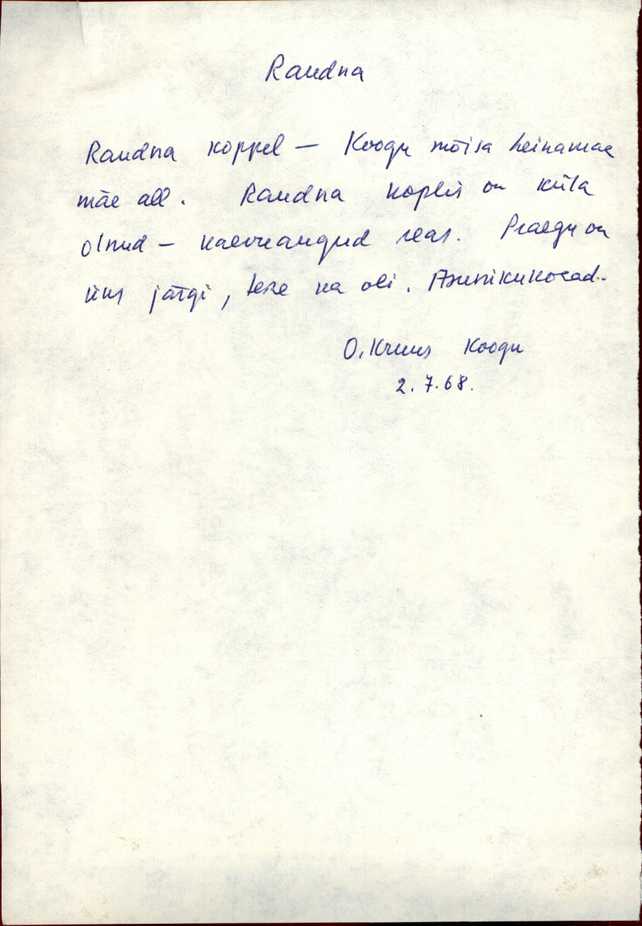 Raudna
Raudna koppel – Koogu mõisa heinamaa
mäe all. Raudna koplis on küla
olnud – kaevuaugud reas. Praegu on
üks järgi, teze ka oli. Asunikukocad.
O. Kruus Koogu
2.7.68.